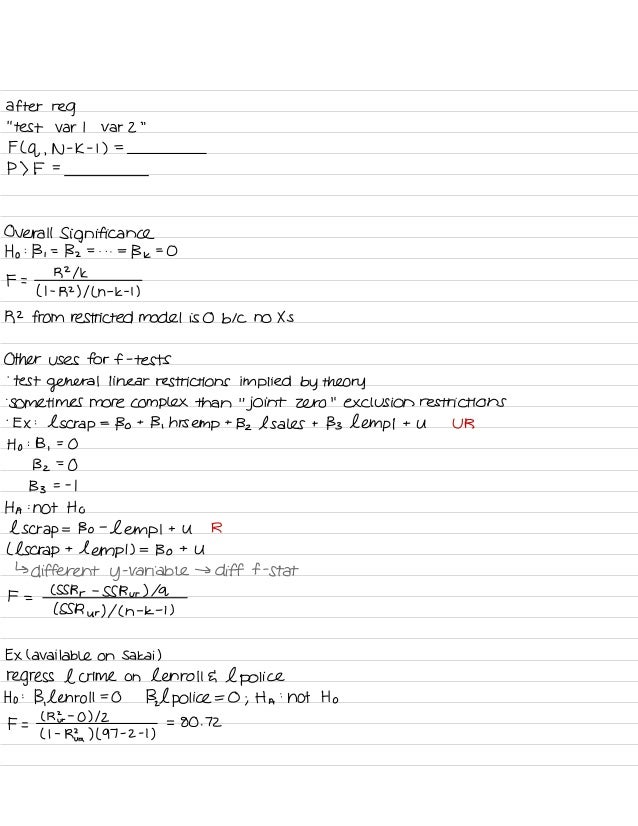 after reg
"test var 1 var 2"
F(q, N-K-1) = ________
P>F = ________
Overall Significance
H₀: B₁ = B₂ = ... = Bₖ = 0
F = R²/k / (1-R²)/(n-k-1)
R² from restricted model is 0 b/c no Xs
Other uses for f-tests
· test general linear restrictions implied by theory
· sometimes more complex than "joint zero" exclusion restrictions
· Ex: lscrap = B₀ + B₁ hrsemp + B₂ lsales + B₃ lempl + u UR
H₀: B₁ = 0
B₂ = 0
B₃ = -1
Hₐ: not H₀
lscrap = B₀ - lempl + u R
(lscrap + lempl) = B₀ + u
↳ different y-variable → diff f-stat
F = (SSRr - SSRur)/q / (SSRur)/(n-k-1)
Ex (available on Sakai)
regress lcrime on lenroll & lpolice
H₀: B₁lenroll = 0 B₂lpolice = 0; Hₐ: not H₀
F = (R²ur - 0)/2 / (1-R²ur)(97-2-1) = 80.72